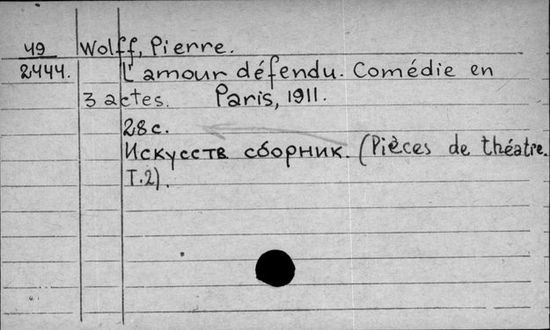 49 Wolff, Pierre.
2444. L'amour défendu. Comédie en
3 actes. Paris, 1911.
28 с.
Искусств сборник. (Pièces de théatre.
T.2).